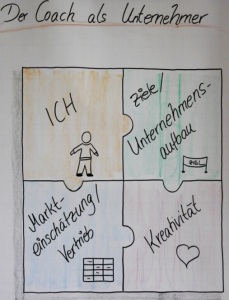 Der Coach als Unternehmer
ICH
Ziele/
Unternehmens-
aufbau
Markt-
einschätzung/
Vertrieb
Kreativität